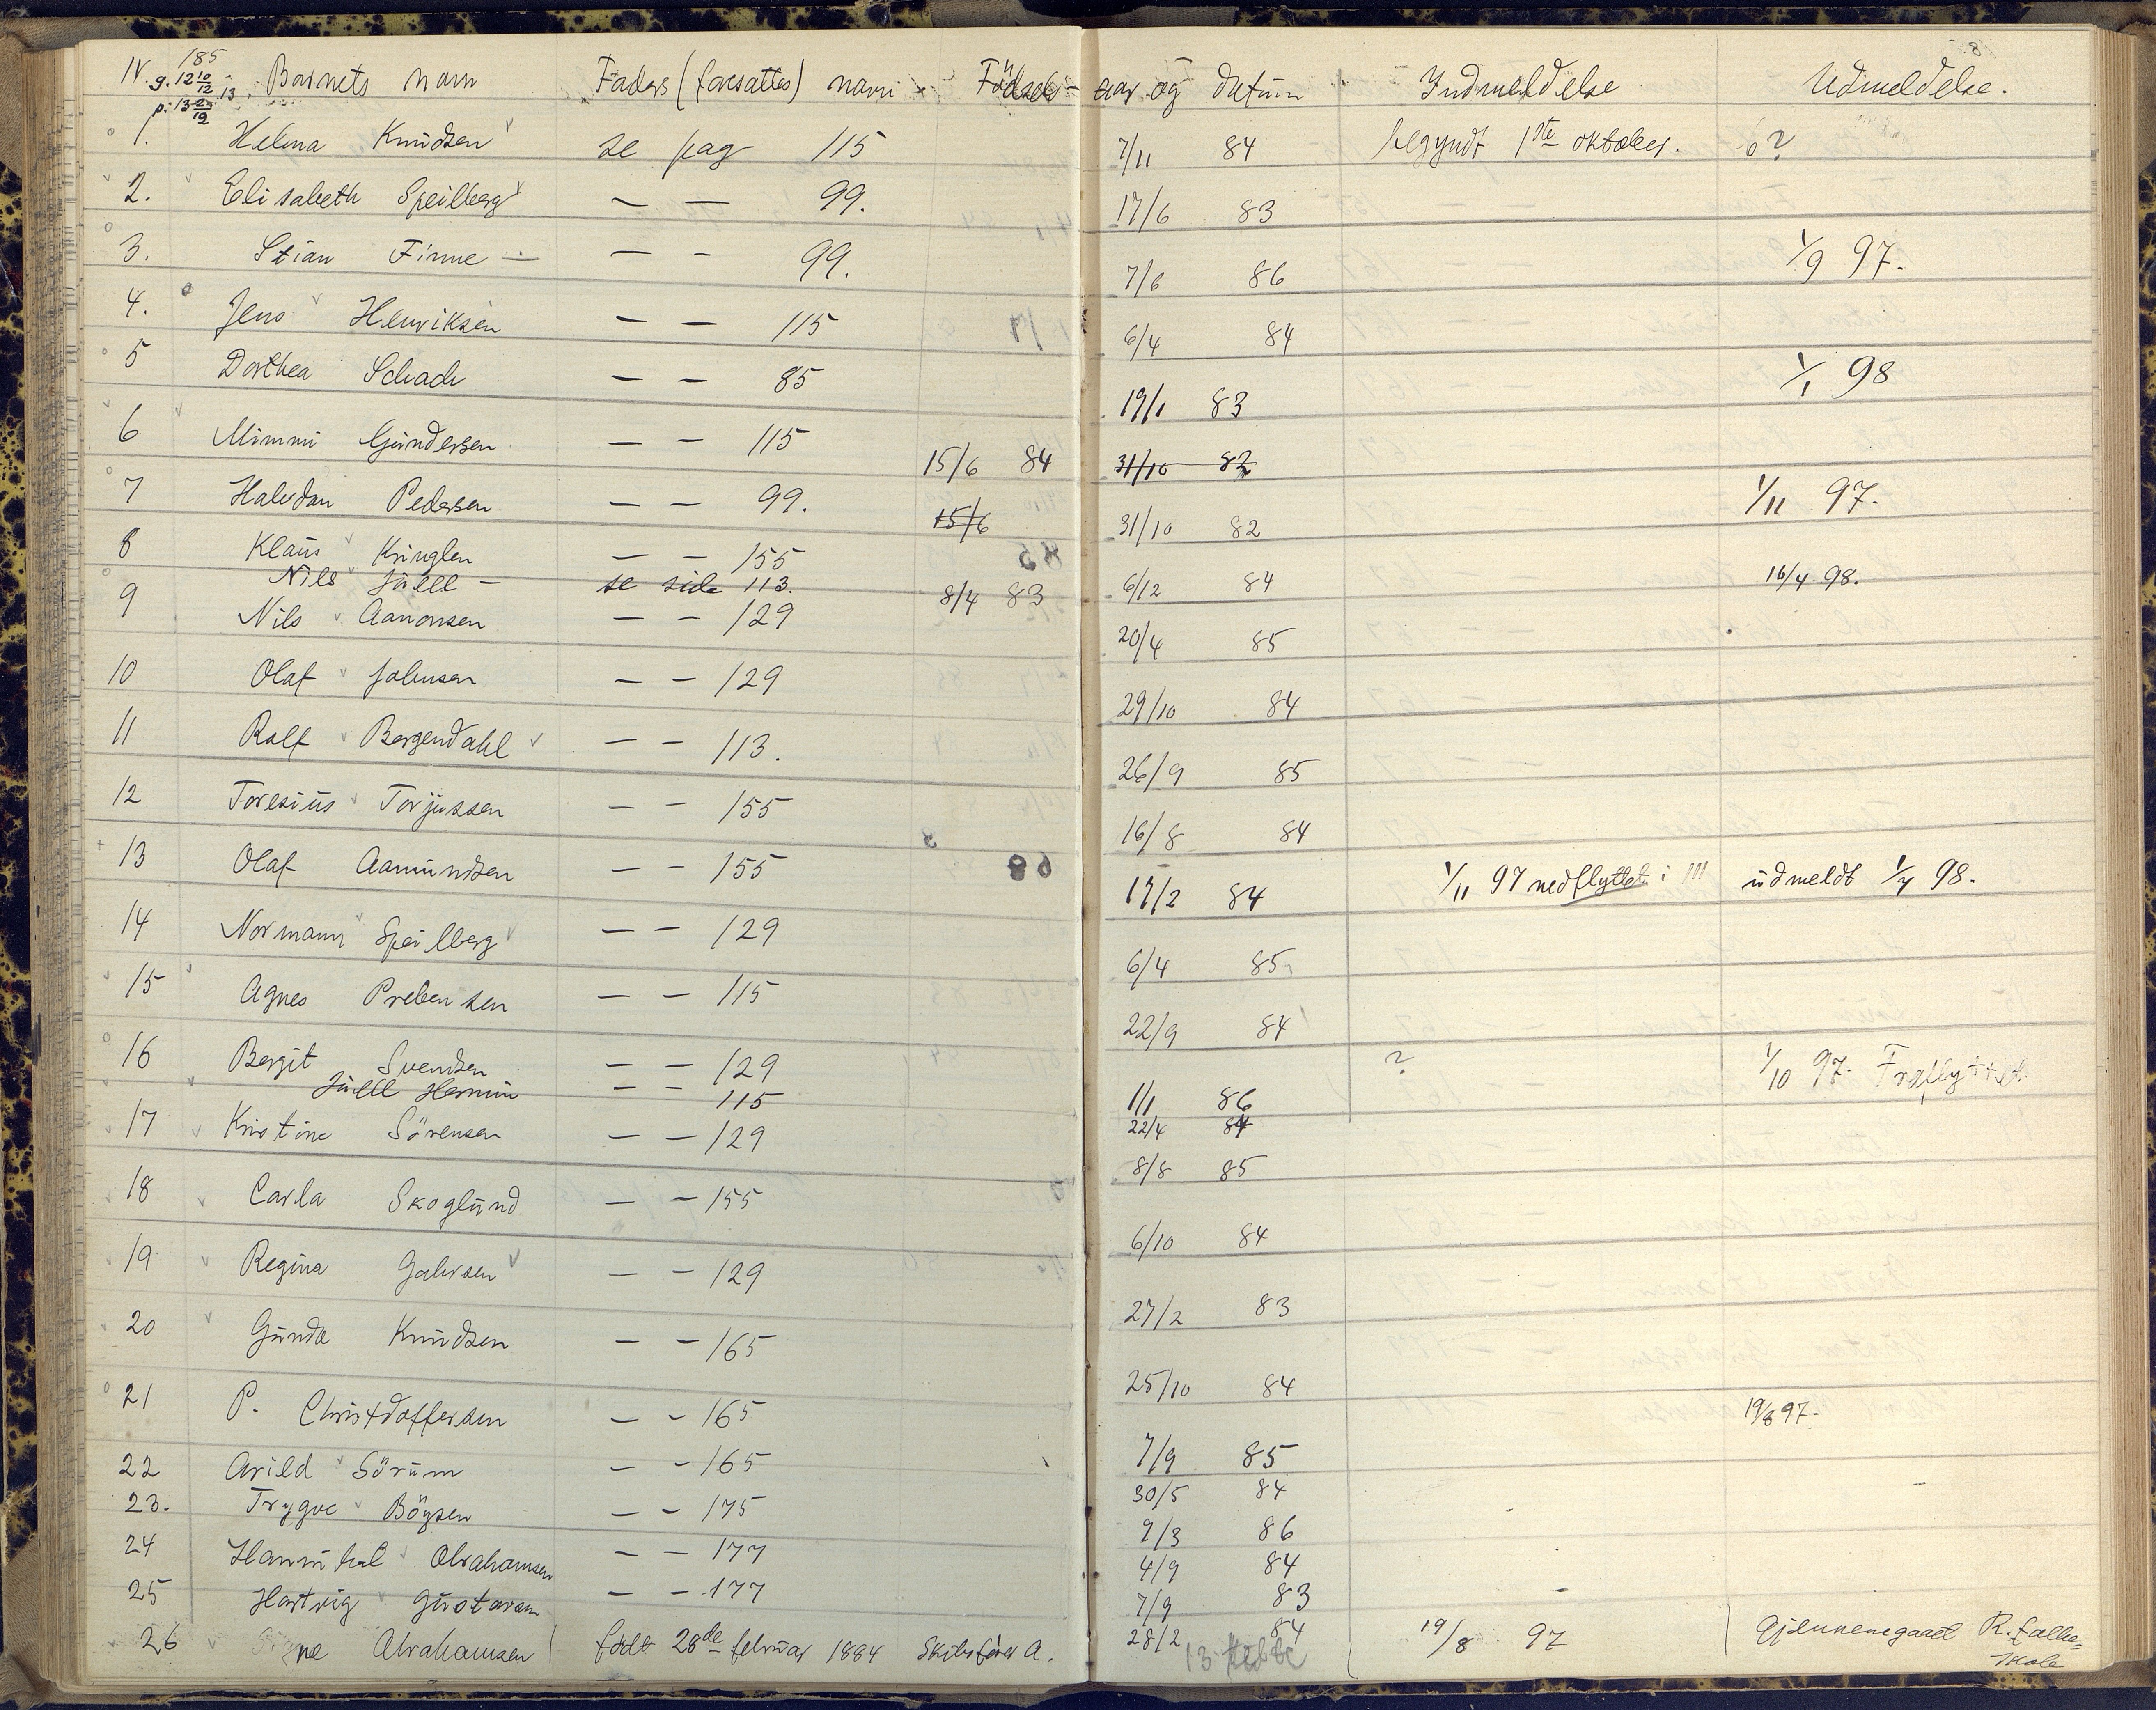 IV. 185 Barnets navn Faders (foresattes) navn Födsels- aar og datum Indmeldelse Udmeldelse.
g. 12 10/12
1. Helma Knudsen se pag 115 7/11 84 begyndt 1ste oktober. 6?
2. Elisabeth Speilberg — — 99. 17/6 83
3. Stian Finne — — — 99. 7/6 86 1/9 97.
4. Jens Henriksen — — 115 6/4 84
5 Dorthea Schach — — 85 19/1 83 1/1 98
6 Mimmi Gundersen — — 115 15/6 84 31/10 82
7 Halvdan Pedersen — — 99. 15/6 31/10 82 1/11 97.
8 Klaus Kringlen — — 155 6/12 84 16/4 98.
Nils Juell — se side 113. 8/4 83
9 Nils Aanonsen — — 129 20/4 85
10 Olaf Johnsen — — 129 29/10 84
11 Rolf Bergendahl — — 113. 26/9 85
12 Toresius Torjussen — — 155 16/8 84
13 Olaf Aamundsen — — 155 17/2 84 1/11 97 nedflyttet i III udmeldt 1/4 98.
14 Normann Speilberg — — 129 6/4 85
15 Agnes Prebensen — — 115 22/9 84
16 Bergit Svendsen — — 129 1/1 86 ? 1/10 97. Fraflyttet
Juell Hermin — — 115 22/4 84
17 Kristine Sörensen — — 129 8/8 85
18 Carla Skoglund — — 155 6/10 84
19 Regina Halvsen — — 129 27/2 83
20 Gunda Knudsen — — 165 25/10 84
21 P. Christdoffersen — — 165 7/9 85 19/8 97.
22 Arild Sörum — — 165 30/5 84
23. Trygve Böysen — — 175 9/3 86
24 Hannibal Abrahamsen — — 177 4/9 84
25 Hartvig Gustavsen — — 177 7/9 83
26 Signe Abrahamsen født 28de februar 1884 Skibsfører A. 28/2 84 19/8 97 Gjennemgaaet R. folke=
skole
13